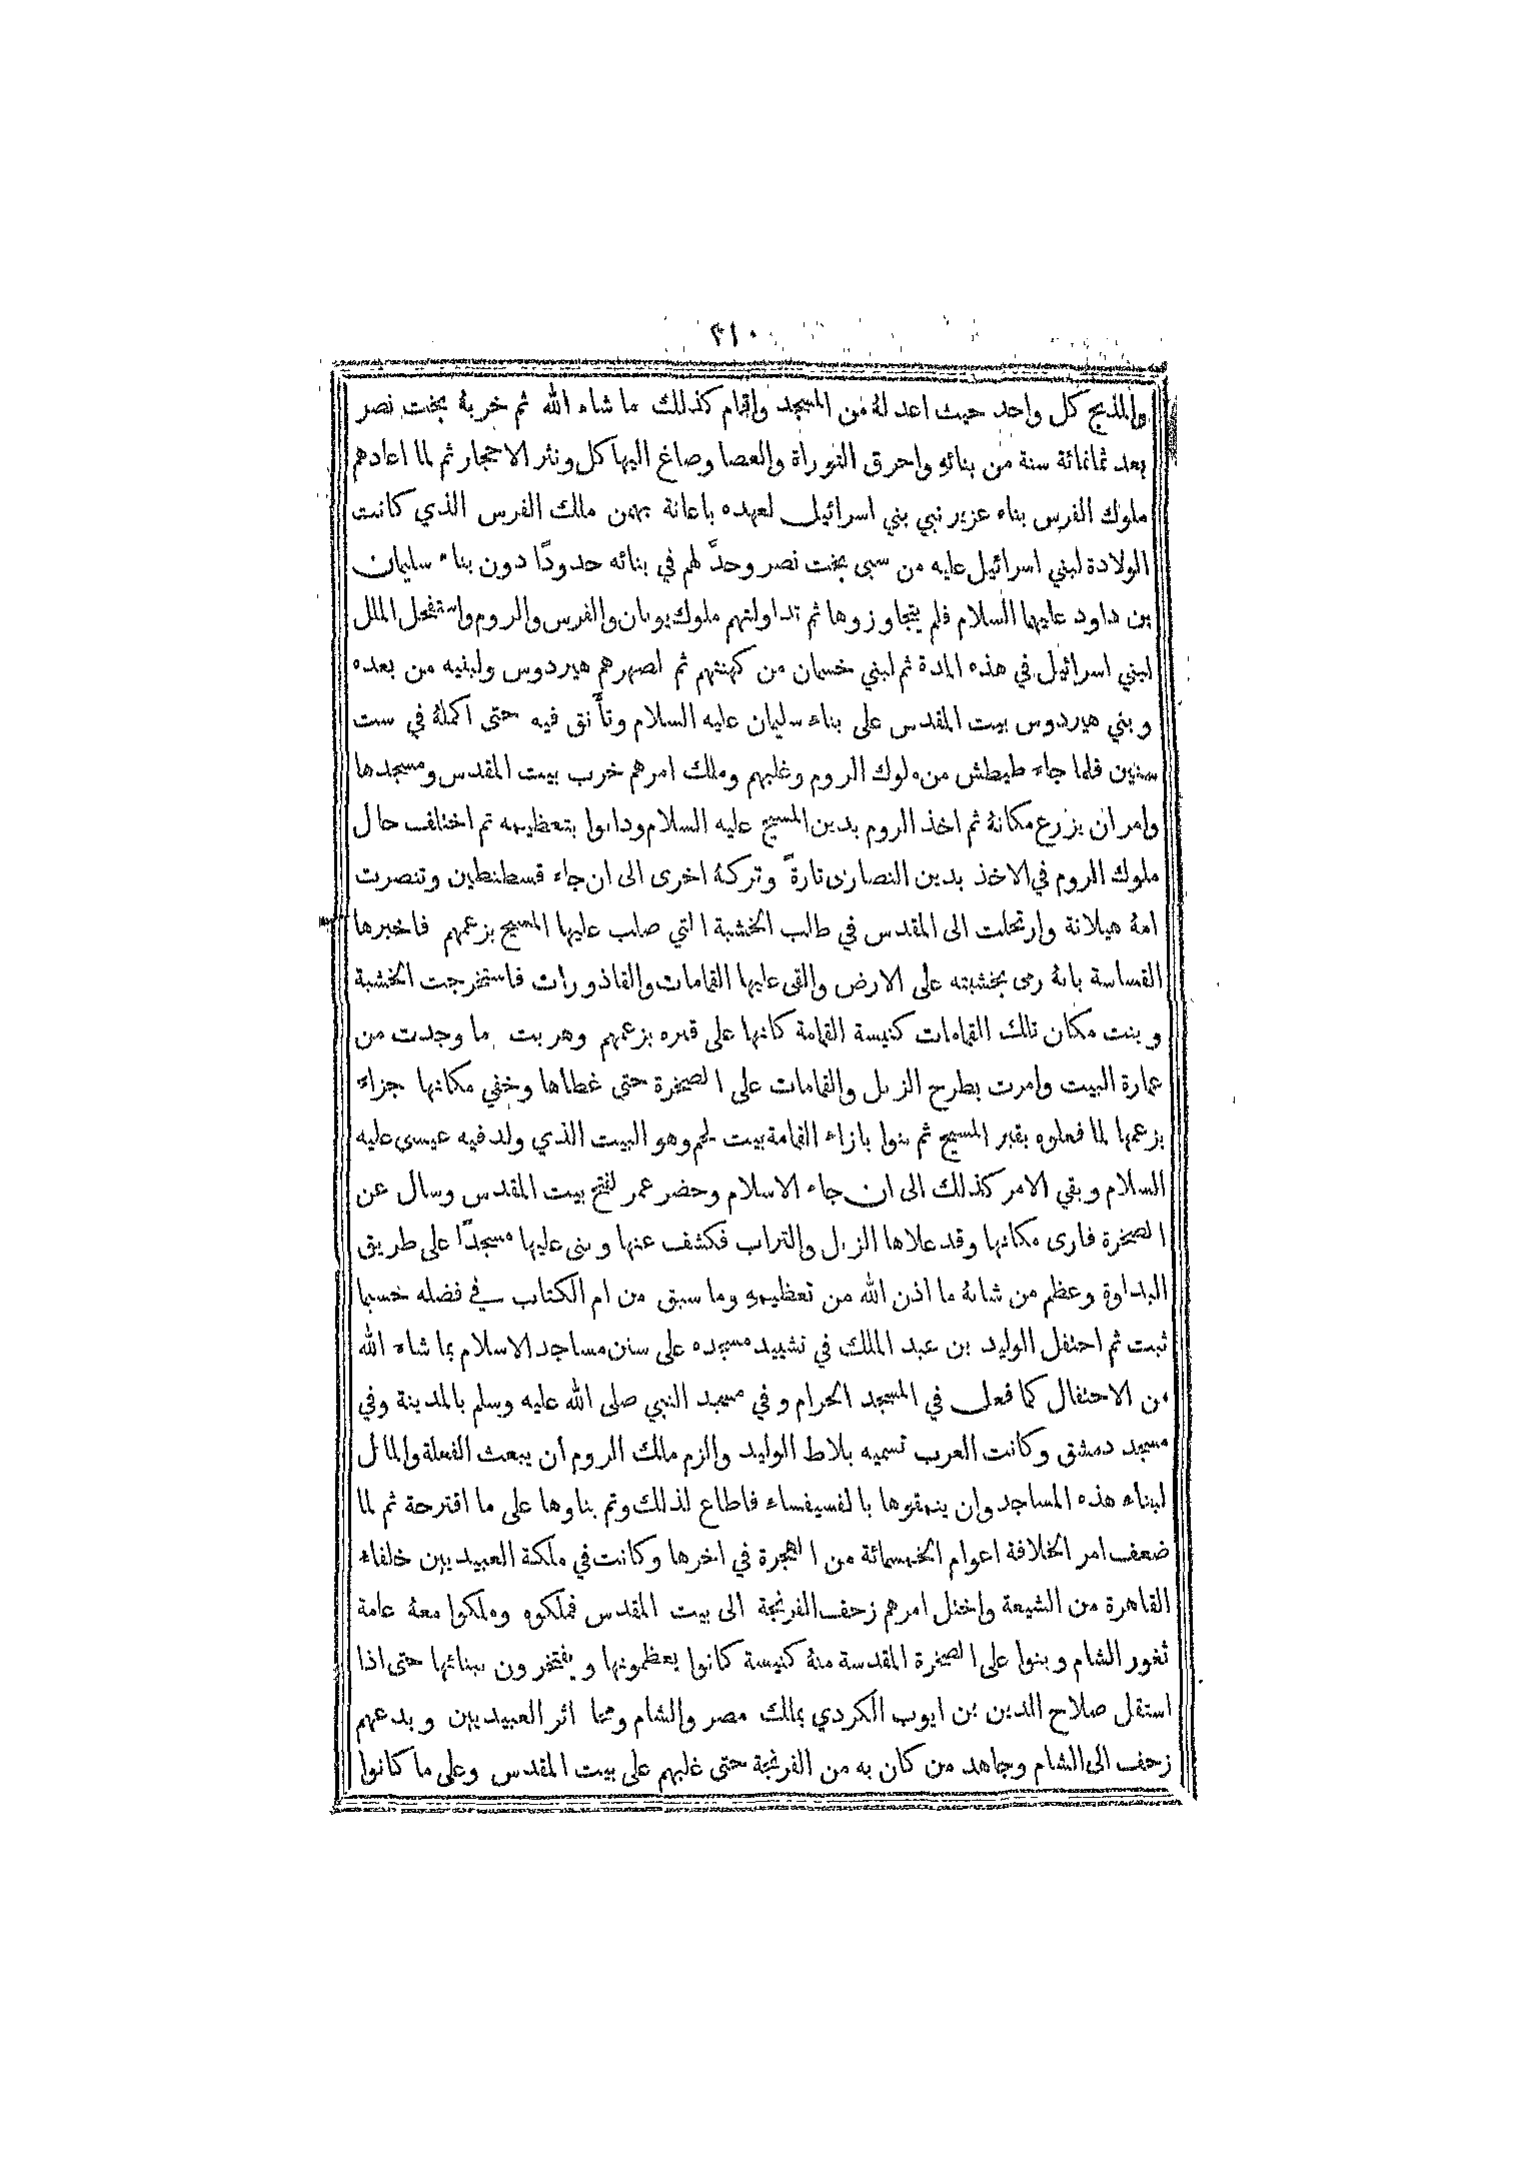 ٣١٠
والمذبح كل واحد حيث اعد لهُ من المسجد واقام كذلك ما شاء الله ثم خربهُ بخت نصر
بعد ثمانمائة سنة من بنائهِ واحرق التوراة والعصا وصاغ الهياكل ونثر الاحجار ثم لما اعادهم
ملوك الفرس بناه عزير نبي بني اسرائيل لعهده باعانة بهمن ملك الفرس الذي كانت
الولادة لبني اسرائيل عليه من سبى بخت نصر وحدَّ لهم في بنائه حدودًا دون بناء سليمان
بن داود عليهما السلام فلم يتجاوزوها ثم تداولتهم ملوك يونان والفرس والروم واستفحل الملك
لبني اسرائيل في هذه المدة ثم لبني خسمان من كهنتهم ثم لصهرهم هيردوس ولبنيه من بعده
وبني هيردوس بيت المقدس على بناء سليمان عليه السلام وتأنق فيه حتى اكملهُ في ست
سنين فلما جاء طيطش من ملوك الروم وغلبهم وملك امرهم خرب بيت المقدس ومسجدها
وامر ان يزرع مكانهُ ثم اخذ الروم بدين المسيح عليه السلام ودانوا بتعظيمه ثم اختلف حال
ملوك الروم في الاخذ بدين النصارى تارةً وتركهُ اخرى الى ان جاء قسطنطين وتنصرت
امهُ هيلانة وارتحلت الى المقدس في طلب الخشبة التي صلب عليها المسيح بزعمهم فاخبرها
القساسة بانهُ رمى بخشبته على الارض والقى عليها القمامات والقاذورات فاستخرجت الخشبة
وبنت مكان تلك القمامات كنيسة القمامة كانها على قبره بزعمهم وهربت ما وجدت من
عمارة البيت وامرت بطرح الزبل والقمامات على الصخرة حتى غطاها وخفي مكانها جزاء
بزعمها لما فعلوه بقبر المسيح ثم بنوا بازاء القمامة بيت لحم وهو البيت الذي ولد فيه عيسى عليه
السلام وبقي الامر كذلك الى ان جاء الاسلام وحضر عمر لفتح بيت المقدس وسال عن
الصخرة فارى مكانها وقد علاها الزبل والتراب فكشف عنها وبنى عليها مسجدًا على طريق
البداوة وعظم من شانهُ ما اذن الله من تعظيمهِ وما سبق من ام الكتاب في فضله حسبما
ثبت ثم احتفل الوليد بن عبد الملك في تشييد مسجده على سنن مساجد الاسلام بما شاء الله
من الاحتفال كما فعل في المسجد الحرام وفي مسجد النبي صلى الله عليه وسلم بالمدينة وفي
مسجد دمشق وكانت العرب تسميه بلاط الوليد والزم ملك الروم ان يبعث الفعلة والمال
لبناء هذه المساجد وان ينمقوها بالفسيفساء فاطاع لذلك وتم بناوها على ما اقترحهُ ثم لما
ضعف امر الخلافة اعوام الخمسمائة من الهجرة في اخرها وكانت في ملكة العبيديين خلفاء
القاهرة من الشيعة واختل امرهم زحف الفرنجة الى بيت المقدس فملكوه وملكوا معهُ عامة
ثغور الشام وبنوا على الصخرة المقدسة منهُ كنيسة كانوا يعظمونها ويفتخرون ببنائها حتى اذا
استقل صلاح الدين بن ايوب الكردي بملك مصر والشام ومحا اثر العبيديين وبدعهم
زحف الى الشام وجاهد من كان به من الفرنجة حتى غلبهم على بيت المقدس وعلى ما كانوا